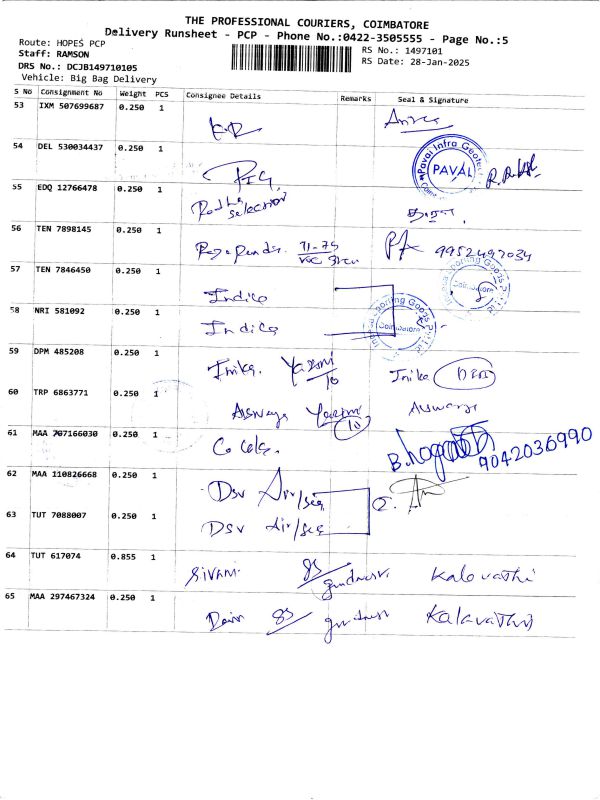 THE PROFESSIONAL COURIERS, COIMBATORE
Delivery Runsheet - PCP - Phone No.:0422-3505555 - Page No.:5
Route: HOPES PCP
Staff: RAMSON
DRS No.: DCJB149710105
Vehicle: Big Bag Delivery
RS No.: 1497101
RS Date: 28-Jan-2025
S No Consignment No Weight PCS Consignee Details Remarks Seal & Signature
53 IXM 507699687 0.250 1
54 DEL 530034437 0.250 1
Pavai Infra Geotec
PAVAI
55 EDQ 12766478 0.250 1 Radha
Selection
56 TEN 7898145 0.250 1 9952497034
57 TEN 7846450 0.250 1 Indica
Coimbatore
58 NRI 581092 0.250 1 Indica
Coimbatore
59 DPM 485208 0.250 1 Inika. Inika
10
60 TRP 6863771 0.250 1 Aiswarya
10
61 MAA 707166030 0.250 1
9042036990
62 MAA 110826668 0.250 1 Dsv Air/sea
63 TUT 7088007 0.250 1 Dsv Air/sea
64 TUT 617074 0.855 1 Sivam 85 Kalavathi
65 MAA 297467324 0.250 1 85 Kalavathi